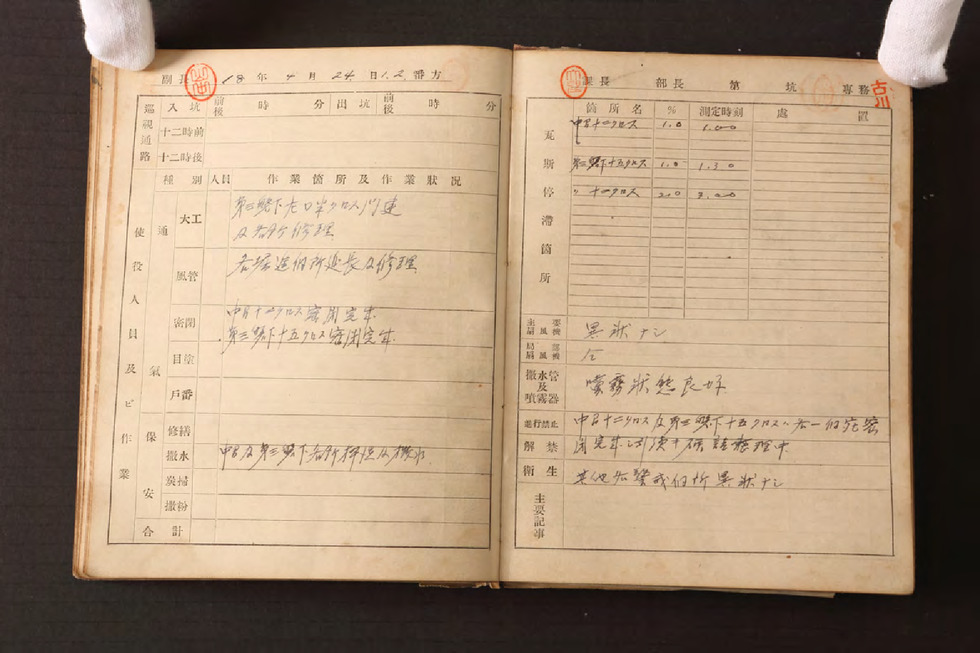 副長 18年4月24日1.2.番方
巡視通路 入坑 前後 時 分 出坑 前後 時 分
十二時前
十二時後
使役人員及ビ作業
種別 人員 作業箇所及作業狀况
通氣
大工 第三盤下
及各所修理
風管 各掘進個所延長及修理
密閉 中目十二クロス密閉完本
第三盤下十五クロス密閉完本
目塗
戸番
保安
修繕
撒水 中目及第三盤下各所掃除及撒水
炭掃
撒粉
合計
課長 部長 第 坑 專務
古川
瓦斯停滯箇所
箇所名 % 測定時刻 處置
中目十二クロス 1.0 1.00
第三盤下十五クロス 1.0 1.30
〃 十一クロス
主要扇風機 異狀ナシ
局部扇風機 仝
撒水管及噴霧器 噴霧狀態良好
進行禁止解禁 中目十二クロス及第三盤下十五クロス
閉完本
衛生 其他 異狀ナシ
主要記事